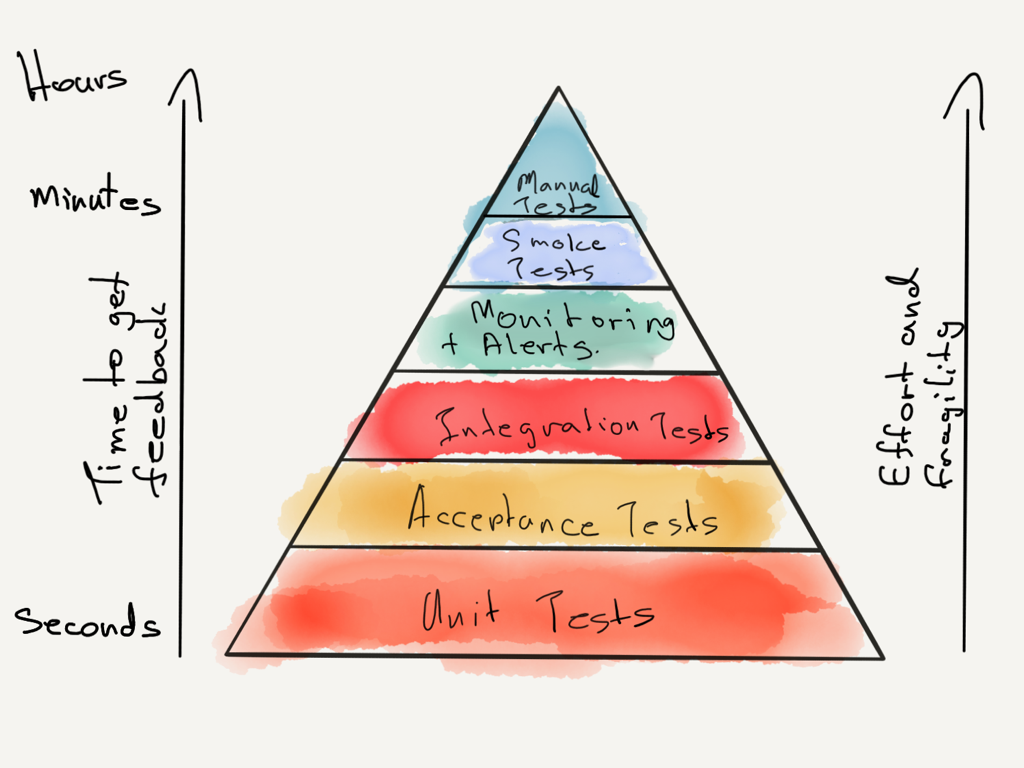 Hours
Minutes
Time to get
feedback
Seconds
Manual
Tests
Smoke
Tests
Monitoring
+ Alerts.
Integration Tests
Acceptance Tests
Unit Tests
Effort and
fragility